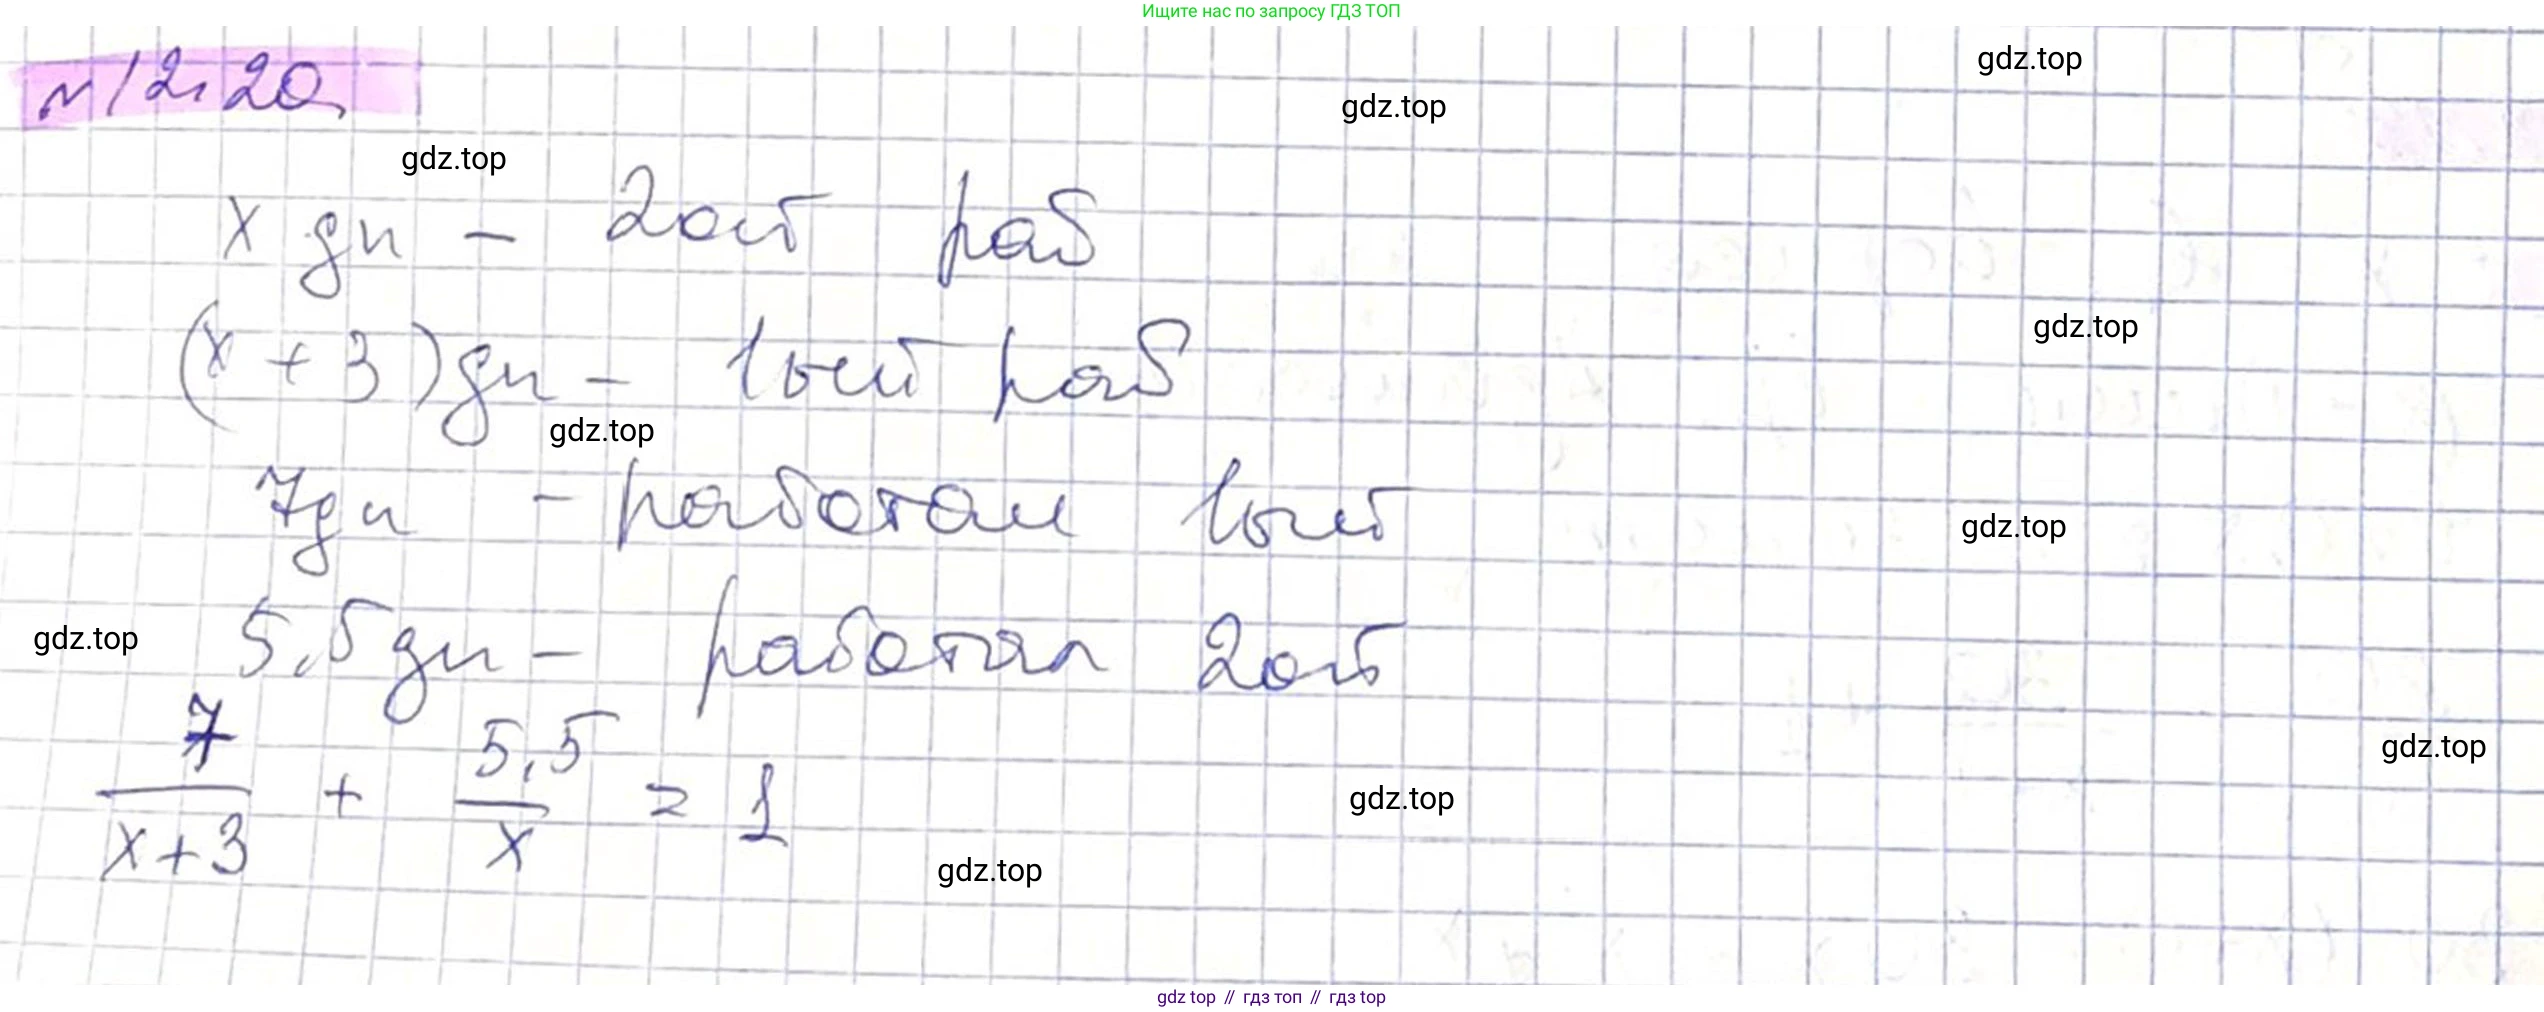 Ищите нас по запросу ГДЗ ТОП
№12.20.
gdz.top
gdz.top
gdz.top
x дн - 2ой раб
(x + 3) дн - 1ый раб
gdz.top
gdz.top
7дн - работал 1ый
gdz.top
5,5 дн - работал 2ой
gdz.top
7/(x+3) + 5,5/x = 1
gdz.top
gdz.top
gdz.top
gdz top // гдз топ // гдз top